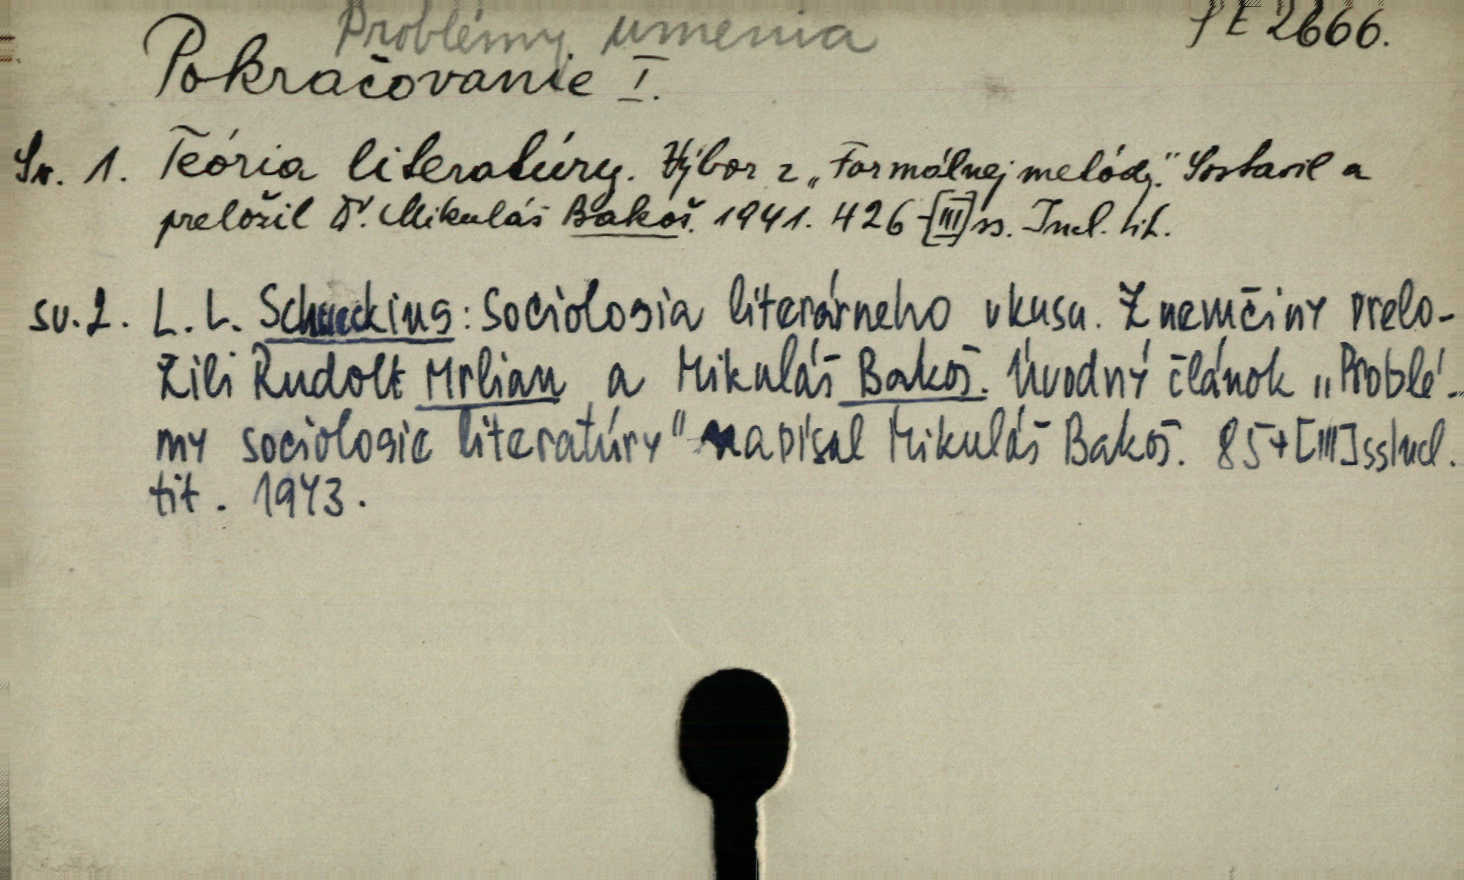 Problémy umenia
PE 2666.
Pokračovanie I.
Sv. 1. Teória literatúry. Výbor z „Formálnej metódy." Sostavil a
preložil Dr. Mikuláš Bakoš. 1941. 426+[III] ss. Incl. tit.
sv. 2. L. L. Schuecking: Sociologia literárneho vkusu. Z nemčiny prelo-
žili Rudolf Mrlian a Mikuláš Bakoš. Úvodný článok „Problé-
my sociologie literatúry" napísal Mikuláš Bakoš. 85+[III] ss Incl.
tit. 1943.